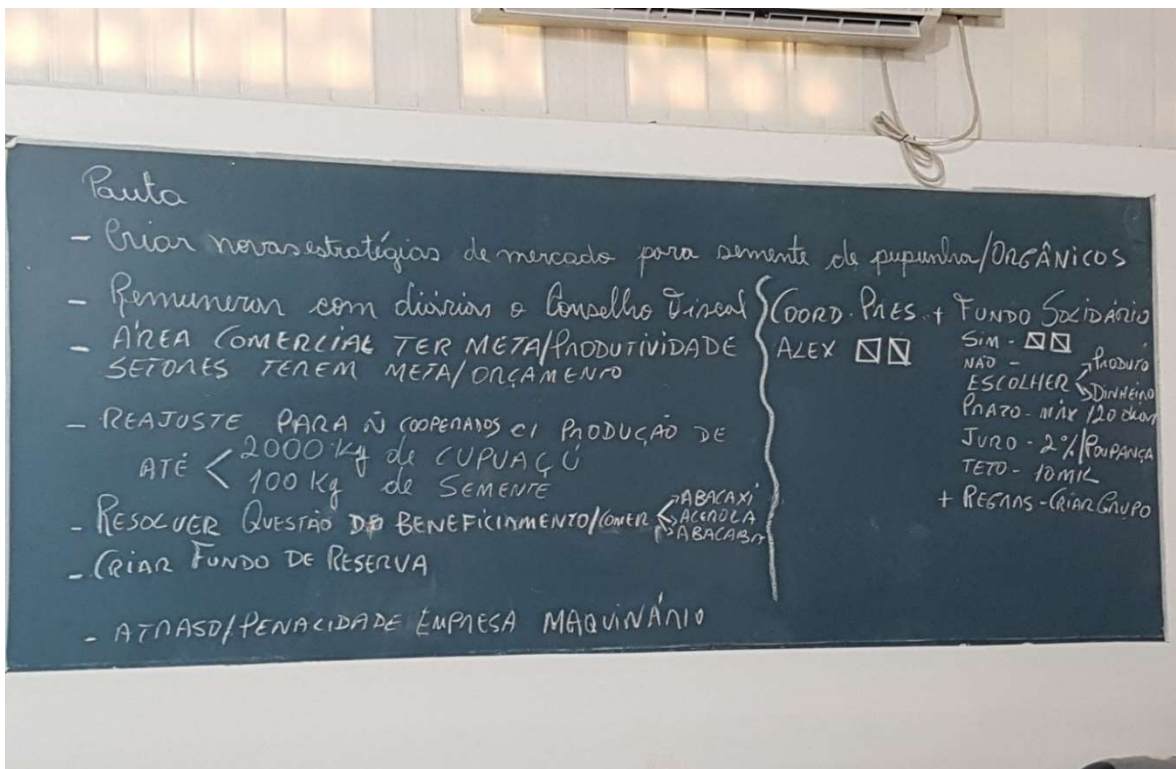 Pauta
- Criar novas estratégias de mercado para semente de pupunha/ORGÂNICOS
- Remunerar com diárias o Conselho Fiscal
- ÁREA COMERCIAL TER META/PRODUTIVIDADE
SETORES TEREM META/ORÇAMENTO
- REAJUSTE PARA Ñ COOPERADOS C/ PRODUÇÃO DE
ATÉ < 2000 Kg de CUPUAÇÚ
100 Kg de SEMENTE
- RESOLVER QUESTÃO DO BENEFICIAMENTO/COMER ABACAXÍ
ACEROLA
ABACABA
- CRIAR FUNDO DE RESERVA
- ATRASO/PENALIDADE EMPRESA MAQUINÁRIO
COORD. PRES. + FUNDO SOLIDÁRIO
ALEX
SIM -
NÃO -
ESCOLHER PRODUTO
DINHEIRO
PRAZO - MÁX 120 dias
JURO - 2%/POUPANÇA
TETO - 10 MIL
+ REGRAS - CRIAR GRUPO